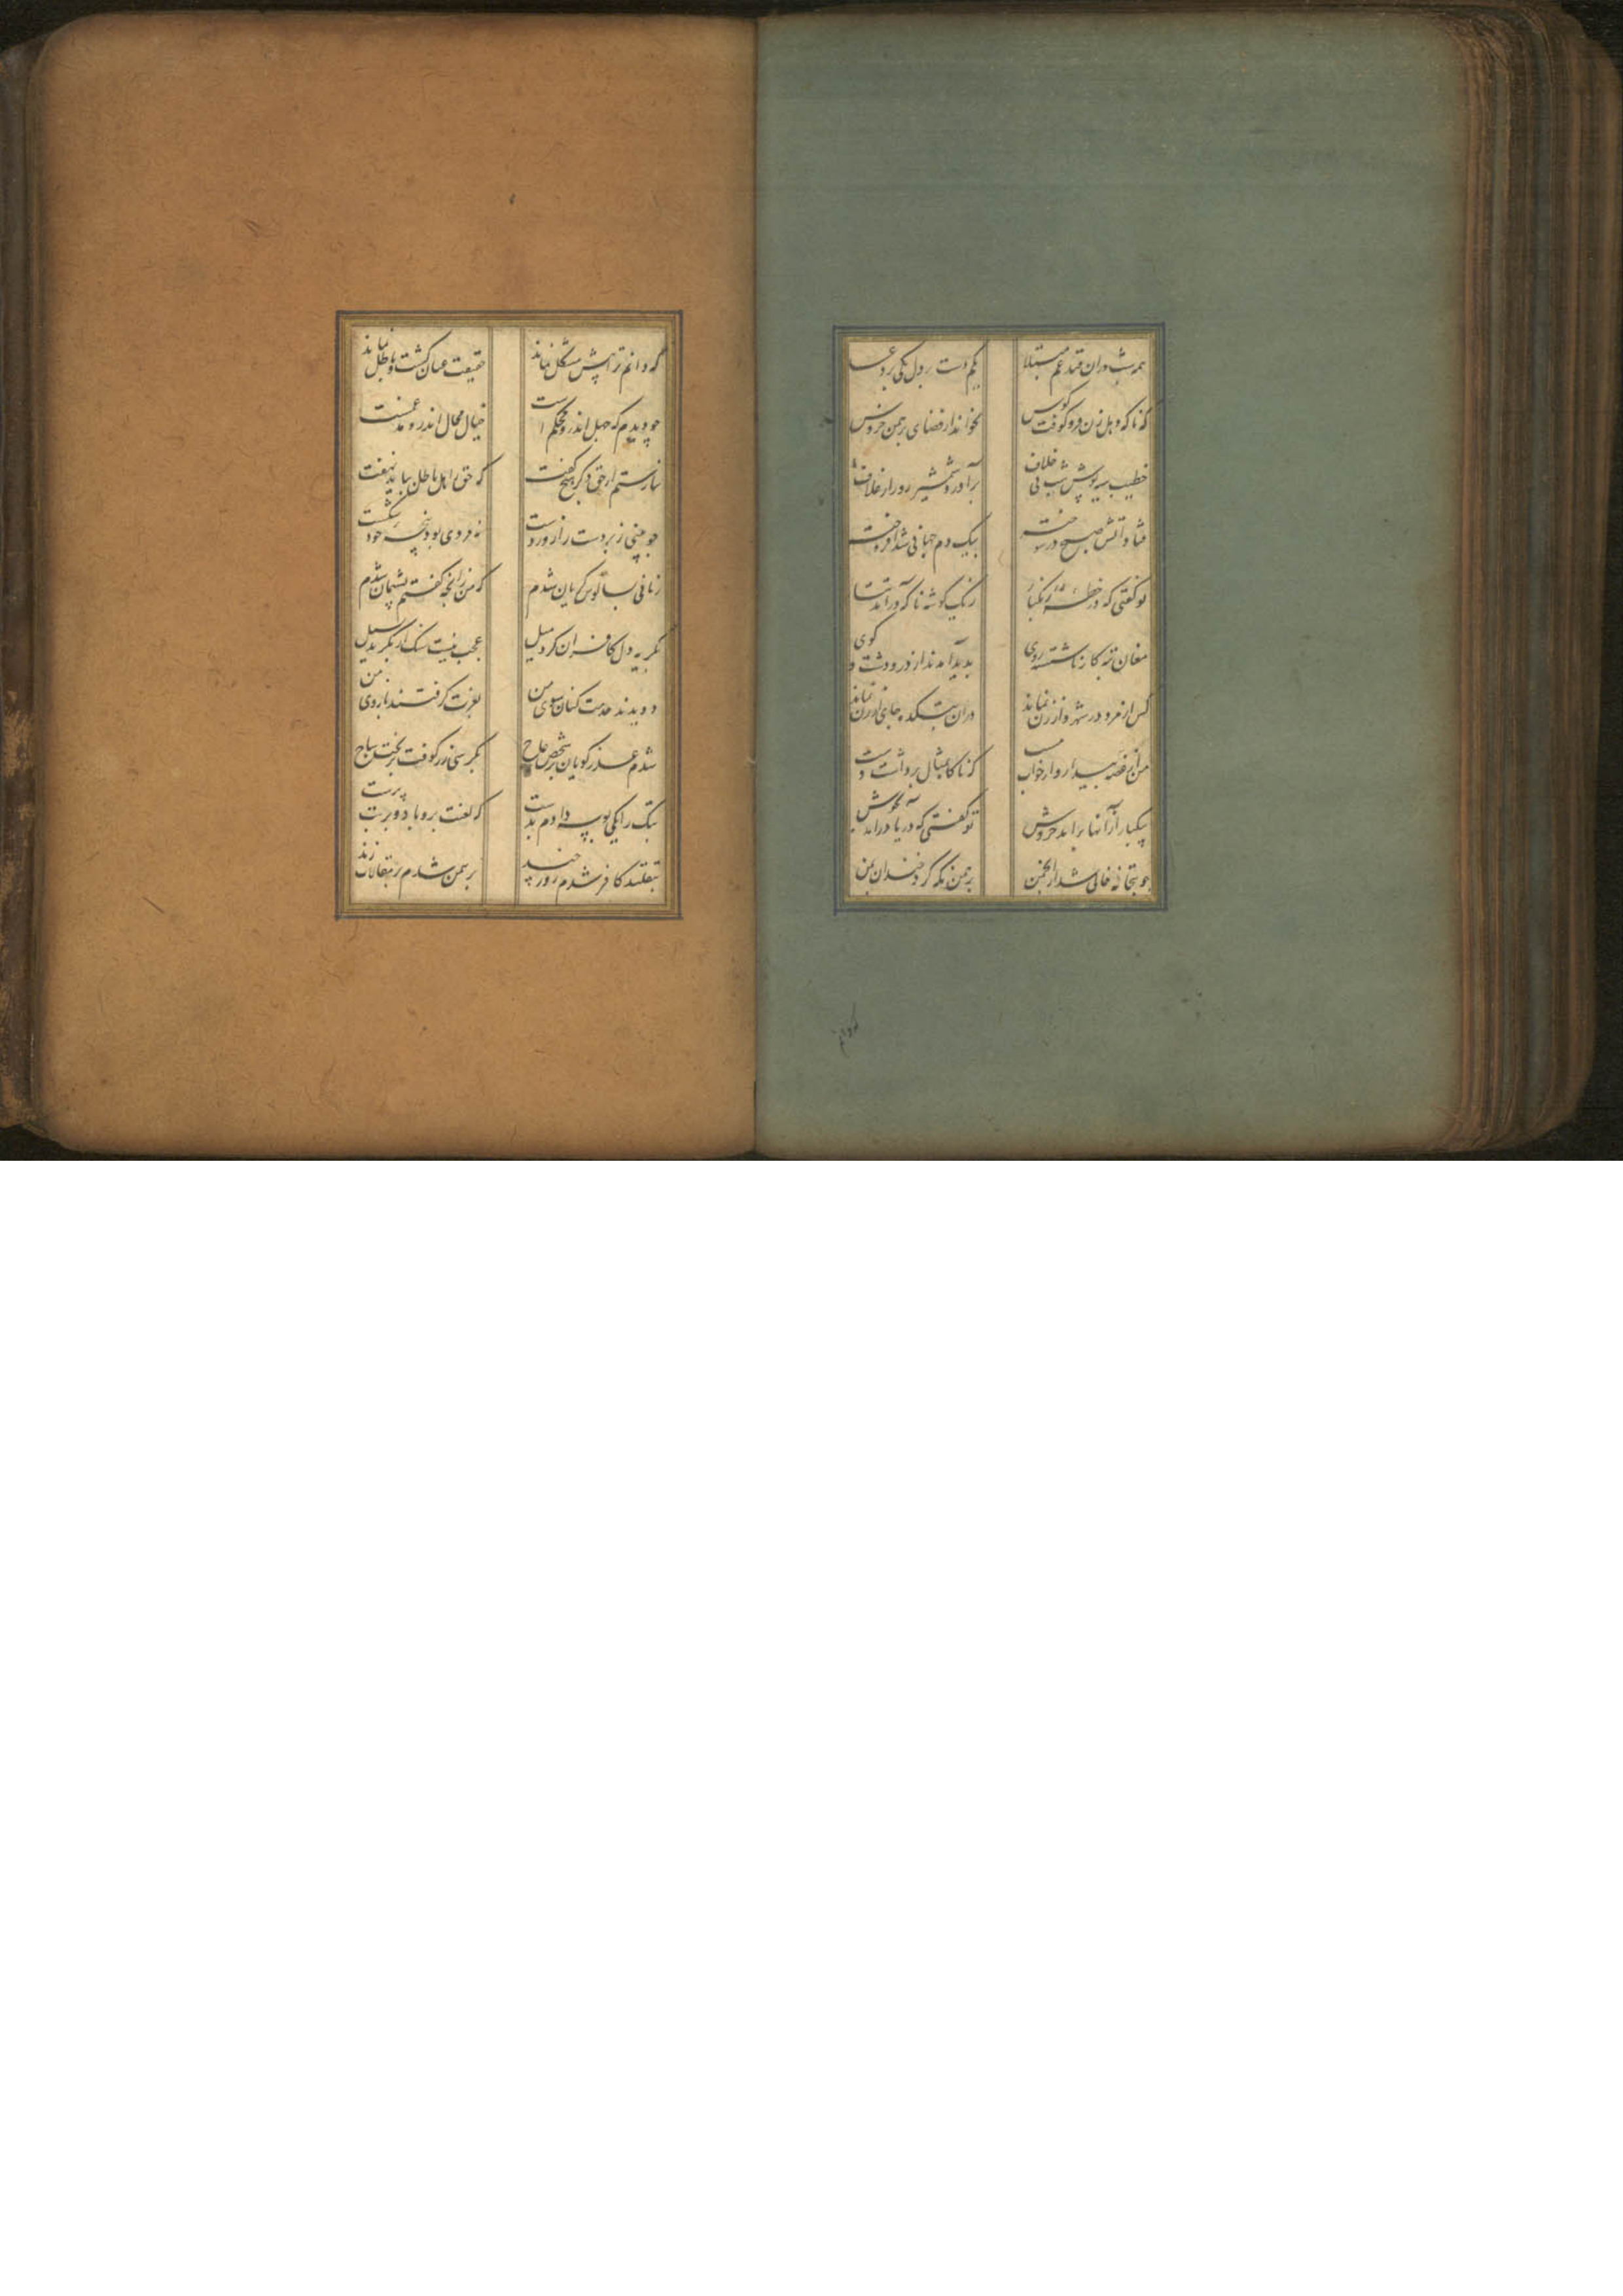 همه شب دران قید غم مبتلا یکم دست بر دل یکی بر دعا
که ناگه دهل زن فرو کوفت کوس بخواند از قضای برهمن خروس
خطیب سیه پوش شب بی خلاف برآورد شمشیر روز از غلاف
فتاد آتش صبح در سوخته بیک دم جهانی شد افروخته
تو گفتی که در خطه زنگبار ز یک گوشه ناگه درآمد تتار
مغان تبه کار ناشسته روی بدید آمدند از در و دشت و کوی
کس از مرد در شهر و از زن نماند دران بتکده جای ارزن نماند
من از غصه بیمار و از خواب مست که ناگاه تمثال برداشت دست
بیکبار از آنها برآمد خروش تو گفتی که دریا درآمد بجوش
چو بتخانه خالی شد از انجمن برهمن نگه کرد خندان بمن
که دانم ترا پیش مشکل نماند حقیقت عیان گشت و باطل نماند
چو دیدم که جهل اندرو محکم است خیال محال اندرو مدغمست
نیارستم از حق دگر هیچ گفت که حق ز اهل باطل بباید نهفت
چو بینی زبردست را زور دست نه مردی بود پنجه خود شکست
زمانی بسالوس گریان شدم که من زانچه گفتم پشیمان شدم
بگریه دل کافران کرد میل عجب نیست سنگ ار بگردد بسیل
دویدند خدمت کنان سوی من بعزت گرفتند بازوی من
شدم عذر گویان بر شخص عاج بکرسی زر کوفت بر تخت ساج
بتک را یکی بوسه دادم بدست که لعنت برو باد و بر بت پرست
بتقلید کافر شدم روز چند برهمن شدم در مقالات زند
که دانم